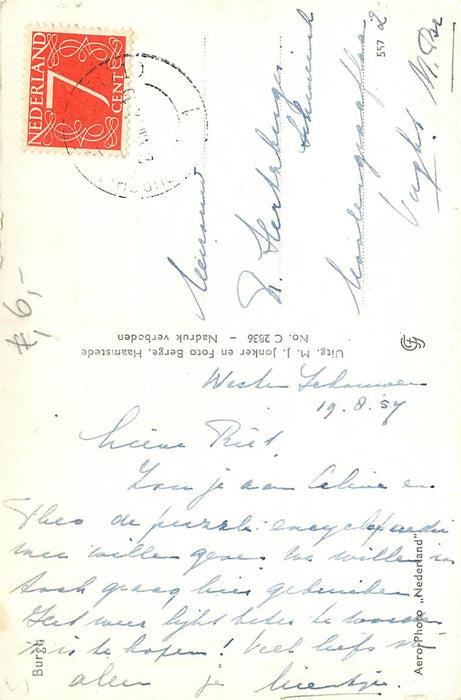 NEDERLAND
7
CENT
Mevrouw
Hertzberger
Vught. N. Br
557 2
f 6,-
Uitg. M. J. Jonker en Foto Berge, Haamstede
No. C 2836 – Nadruk verboden
Wester Schouwen
19.8.57
Lieve Riet,
Zou je aan Celine en
Theo de puzzle encyclopaedie
mee willen geven. We willen
graag hier gebruiken
Het weer lijkt beter te worden
is te hopen! Veel liefs
allen je
Burgh
Aero-Photo „Nederland"